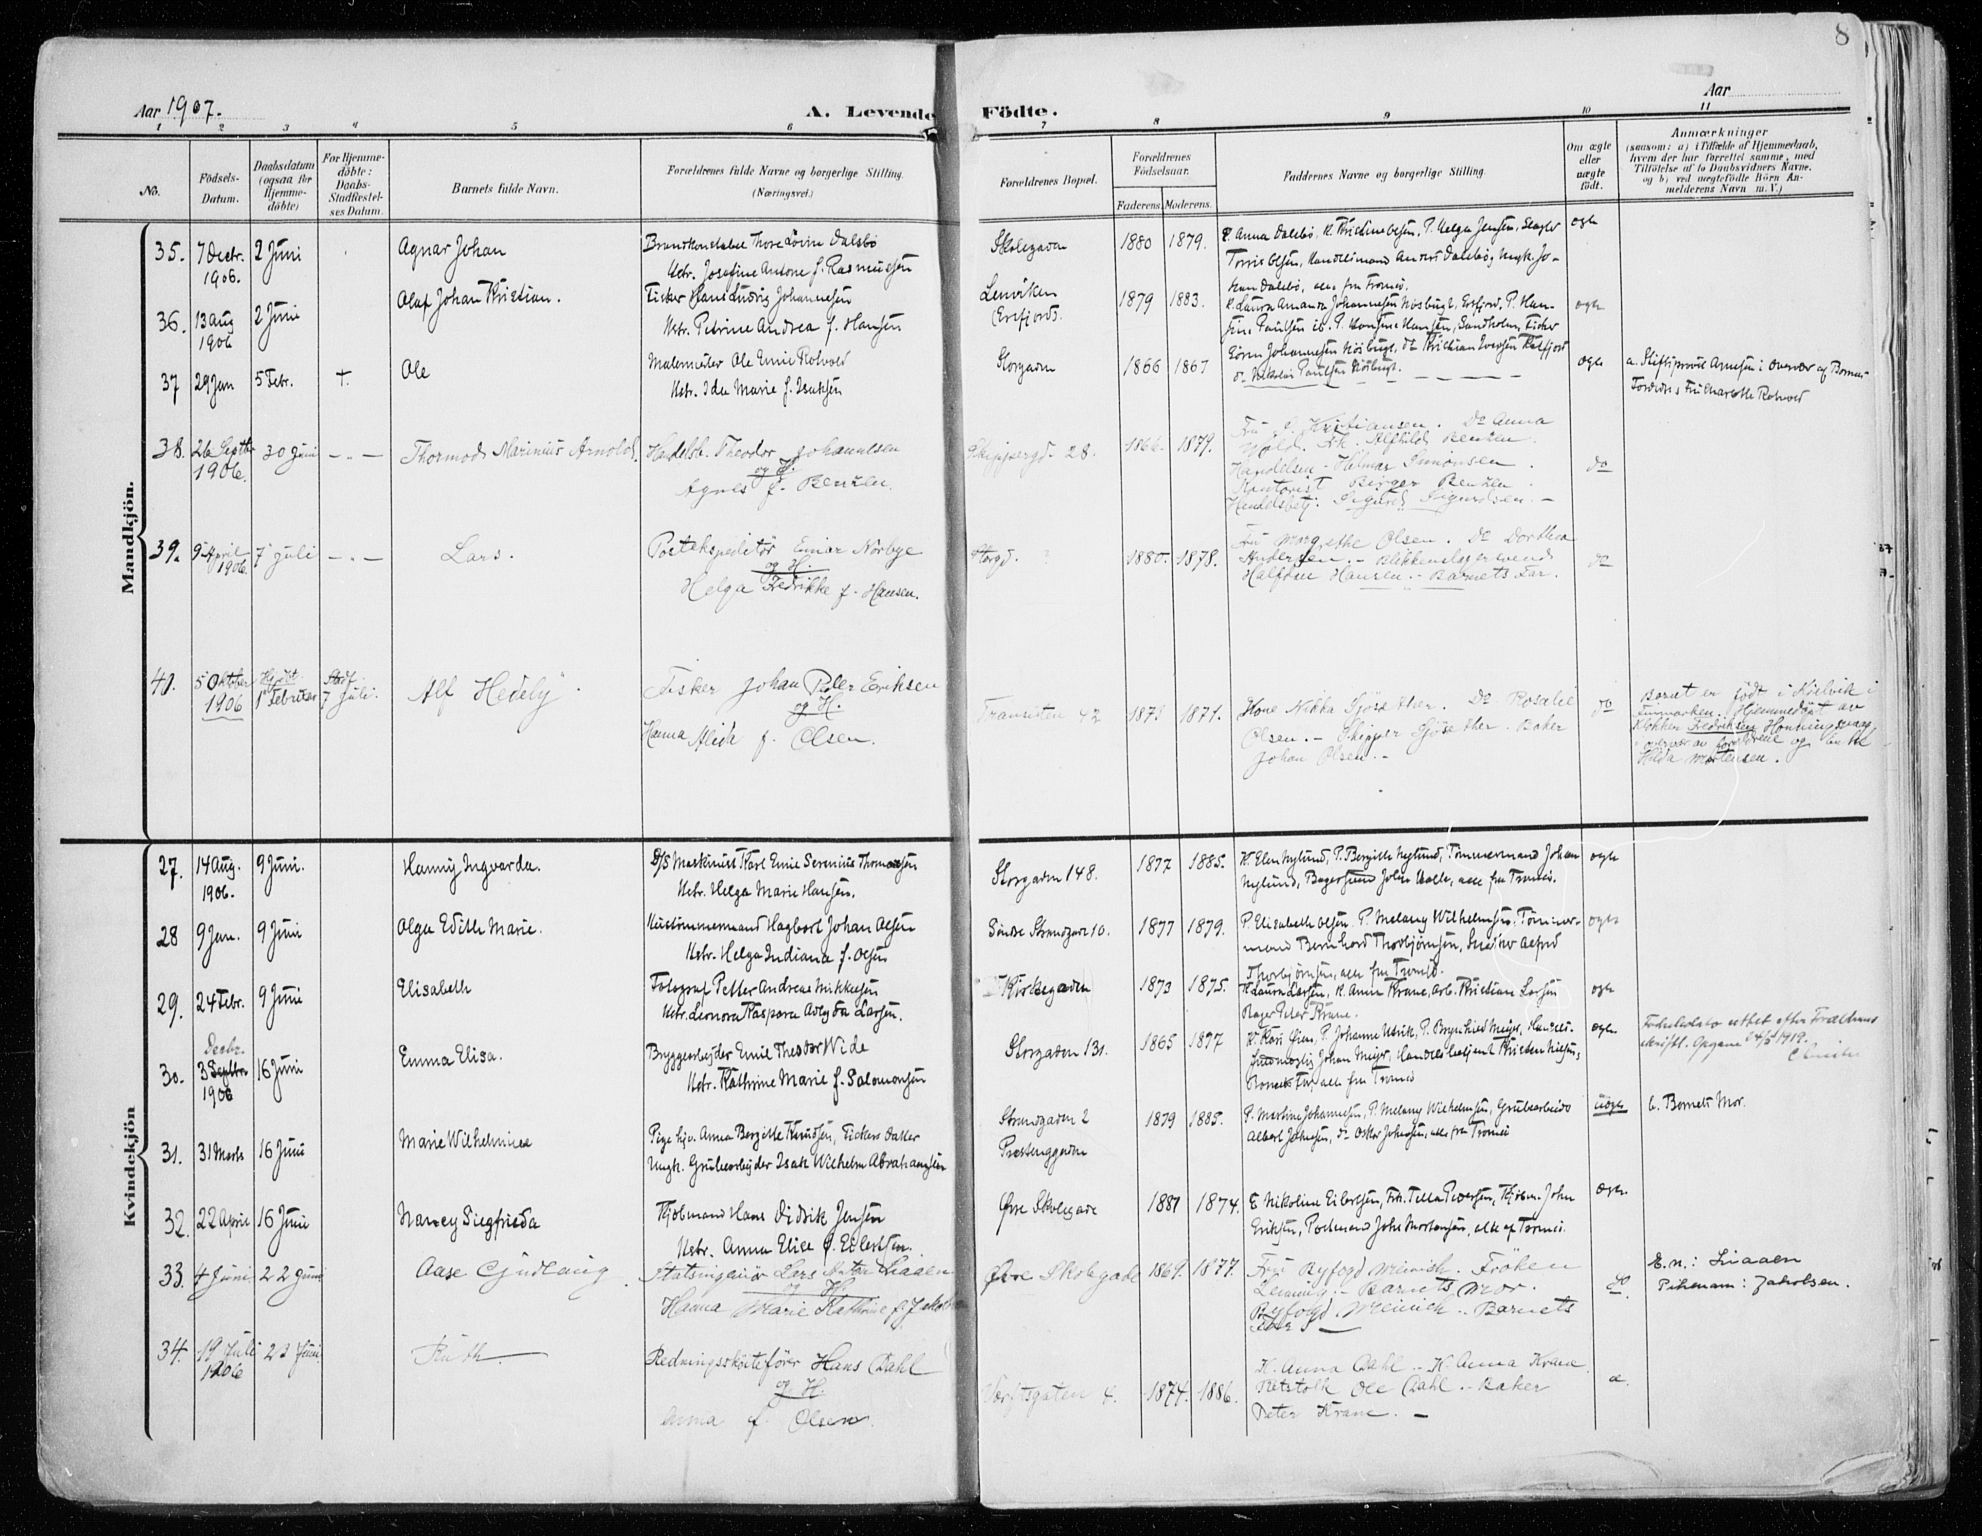 8
Aar 1907.
A. Levende Födte.
Aar
1 2 3 4 5 6 7 8 9 10 11
No.
Födsels-Datum.
Daabsdatum (ogsaa for Hjemme-döbte)
For Hjemme-döbte: Daabs-Stadfæstel-ses Datum.
Barnets fulde Navn.
Forældrenes fulde Navne og borgerlige Stilling. (Næringsvei.)
Forældrenes Bopæl.
Forældrenes Födselsaar.
Faderens. Moderens.
Faddernes Navne og borgerlige Stilling.
Om ægte eller uægte födt.
Anmærkninger
(saasom: a) i Tilfælde af Hjemmedaab,
hvem der har forrettet samme, med
Tilföielse af to Daabsvidners Navne,
og b) ved uægtefödte Börn An-
melderens Navn m. V.)
Mandkjön.
35. 7 Decbr. 1906. 2 Juni
Agnar Johan
Brandkonstabel Thore Lövin Dalsbö
Hstr. Josefine Antone f. Rasmussen
Skolegaden
1880 1879.
P. Anna Dalsbö, K. Kristine Olsen, P. Helga Jensen,
Olsen, Handelsmand Anders Dalsbö, Ungk. Jo-
han Dalsbö, alle fra Tromsö.
ægte
36. 13 Aug 1906 2 Juni
Olaf Johan Kristian.
Fisker Hans Ludvig Johannesen
Hstr. Petrine Andrea f. Hansen
Lenviken
Ersfjord.
1879 1883.
K. Laura Amanda Johannesen Ersfjord, P. Han-
sine Paulsen ib. P. Hansine Hansen, Sandholm, Fisker
Sören Johannesen do Kristian Iversen Kalfjord
do Nikolai Paulsen
ægte
37 29 Jan 5 Febr. +.
Ole
Malermester Ole Emil Rotvold
Hstr. Ida Marie f. Isaksen
Storgaden
1866 1867
ægte
a. Stiftsprovst Arnesen i Overvær af Barnets
Forældre, Fru Charlotte Rotvold
38. 26 Septbr 1906. 30 Juni
Thormod Marinius Arnold.
Handelsb. Theodor Johannesen
og H.
Agnes f. Bentzen.
Skippergd. 28.
1866. 1879.
Fru Kristiansen. Do Anna
Wold. Frk. Alfhild Bentzen.
Handelsm. Hilmar Simonsen.
Kontorist Birger Bentzen.
Handelsbetj. Sigurd Sigurdsen.
do
39. 9 April 1906. 7 Juli
Lars.
Postekspeditör Einar Norbye
og H.
Helga Fredrikke f. Hansen.
Storgd.
1880. 1878.
Fru Margrethe Olsen. Do Dorthea
Andersen. – Blikkenslagersvend
Halfdan Hansen. – Barnets Far.
do
40. 5 Oktbr 1906 Hjdöbt 1ste Februar Stadf. 7 Juli.
Alf Hedely.
Fisker Johan Peder Eriksen
og H.
Hanna Alida f. Olsen.
Fransisten 42
1871 1871.
Kone Nikka Sjösether. Do Rosalie
Olsen. – Skipper Sjösether. Baker
Johan Olsen. –
do
Barnet er födt i Kjelvik i
Finmarken. Hjemmedöbt av
Klokker Fredriksen Honningsvaag
i overvær av forældrene og enke
Hilda Mortensen.
Kvindekjön
27. 14 Aug. 1906. 9 Juni.
Hanny Ingvarda.
D/S Maskinist Karl Emil Serenius Thomassen
Hstr. Helga Marie Hansen.
Storgaden 148.
1877 1885.
K. Elen Nylund, P. Bergitte Nylund, Tömmermand Johan
Nylund, Bagersvend John Holle, alle fra Tromsö.
ægte
28 9 Jan. 9 Juni
Olga Edith Marie.
Hustömmermand Hagbart Johan Olsen
Hstr. Helga Indiana f. Olsen
Söndre Strandgade 10.
1877 1879.
P. Elisabeth Olsen. P. Melany Wilhelmsen, Tömmer-
mand Bernhard Thorbjörnsen, Snedker Alfred
Thorbjörnsen, alle fra Tromsö.
ægte
29. 24 Febr. 9 Juni
Elisabeth
Fotograf Petter Andreas Mikkelsen
Hstr. Leonora Kaspara Adlyda Larsen.
Kirkegaden
1873 1875.
K. Laura Larsen, K. Anna Krane, Arb. Kristian Larsen
Bager Peter Krane.
ægte
30. Decbr. 3 Septbr 1906 16 Juni
Emma Elisa.
Bryggeriarbeider Emil Theodor Wide
Hstr. Kathrine Marie f. Salomonsen
Storgaden 131.
1865 1877
K. Kari Öien, P. Johanne Ulrik, P. Brynhild Meyer, Handels-
Johan Meyer, Handelsbetjent Kristen Nilsen,
Barnets Far, alle fra Tromsö
ægte
Födselsdato rettet efter Forældrenes
skriftl. Opgave 24/5 1912.
31. 31 Marts 16 Juni
Marie Wilhelmine
Pige hjv. Anna Bergitte Knudsen, Fiskers Datter
Ungk. Grubearbeider Isak Wilhelm Abrahamsen
Strandgaden 2
Prestenggaden
1879 1885.
P. Martine Johannesen, P. Melany Wilhelmsen, Grubearbeider
Albert Johnsen, do Oskar Johnsen, alle fra Tromsö
uægte
b. Barnets Mor.
32. 22 April 16 Juni
Nancy Siegfrieda
Kjöbmand Hans Didrik Jensen
Hstr. Anna Elise f. Eilertsen.
Övre Skolegade
1881 1874.
E. Nikoline Eilertsen, Frk. Tella Pedersen, Kjöbm. John
Eriksen, Postmand John Mortensen, alle af Tromsö.
Ægte.
33. 4 Juni 22 Juni
Aase Gjudlaug
Statsingeniör Lars Anton Linaaen
og H.
Hanna Marie Kathrine f. Jakobsen
Övre Skolegade
1869. 1877.
Fru Byfogd Meinich. Fröken
Lemmich. – Barnets Mor.
Byfogd Meinich. – Barnets
Far. –
do.
E.n.: Linaaen
Pikenavn: Jakobsen.
34. 19 Juli 1906 23 Juni
Ruth.
Redningsskoitefører Hans Dahl
og H.
Anna f. Olsen.
Værftsgaten 4.
1874. 1886.
K. Anna Dahl. – K. Anna Krane
Retstolk Ole Dahl. – Baker
Peter Krane. –